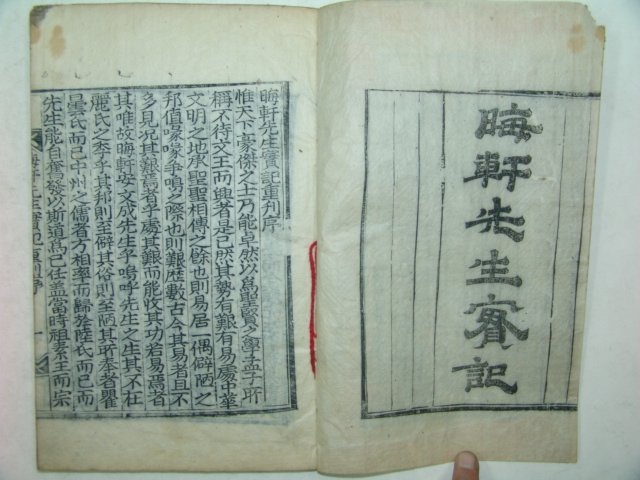 晦軒先生實記
晦軒先生實記重刋序
惟天下豪傑之士乃能卓然以爲聖賢孟子所
稱不待文王而興者是已然其勢有艱有易處中華
文明之地承聖聖相傳之餘也則易居一偶僻陋之
邦值喙喙爭鳴之際也則艱歷數古今其易者且不
多見况其艱焉者乎處其艱而能收其功若易焉者
其唯故晦軒安文成先生乎嗚呼先生之生其不在
麗氏之季乎其邦則至僻其俗則至陋其所奉者瞿
曇氏而已中州之儒者方相率而歸於陸氏而已而
先生能自奮發以斯道爲己任盖當時祖素王而宗
晦軒先生實記重刋序 一